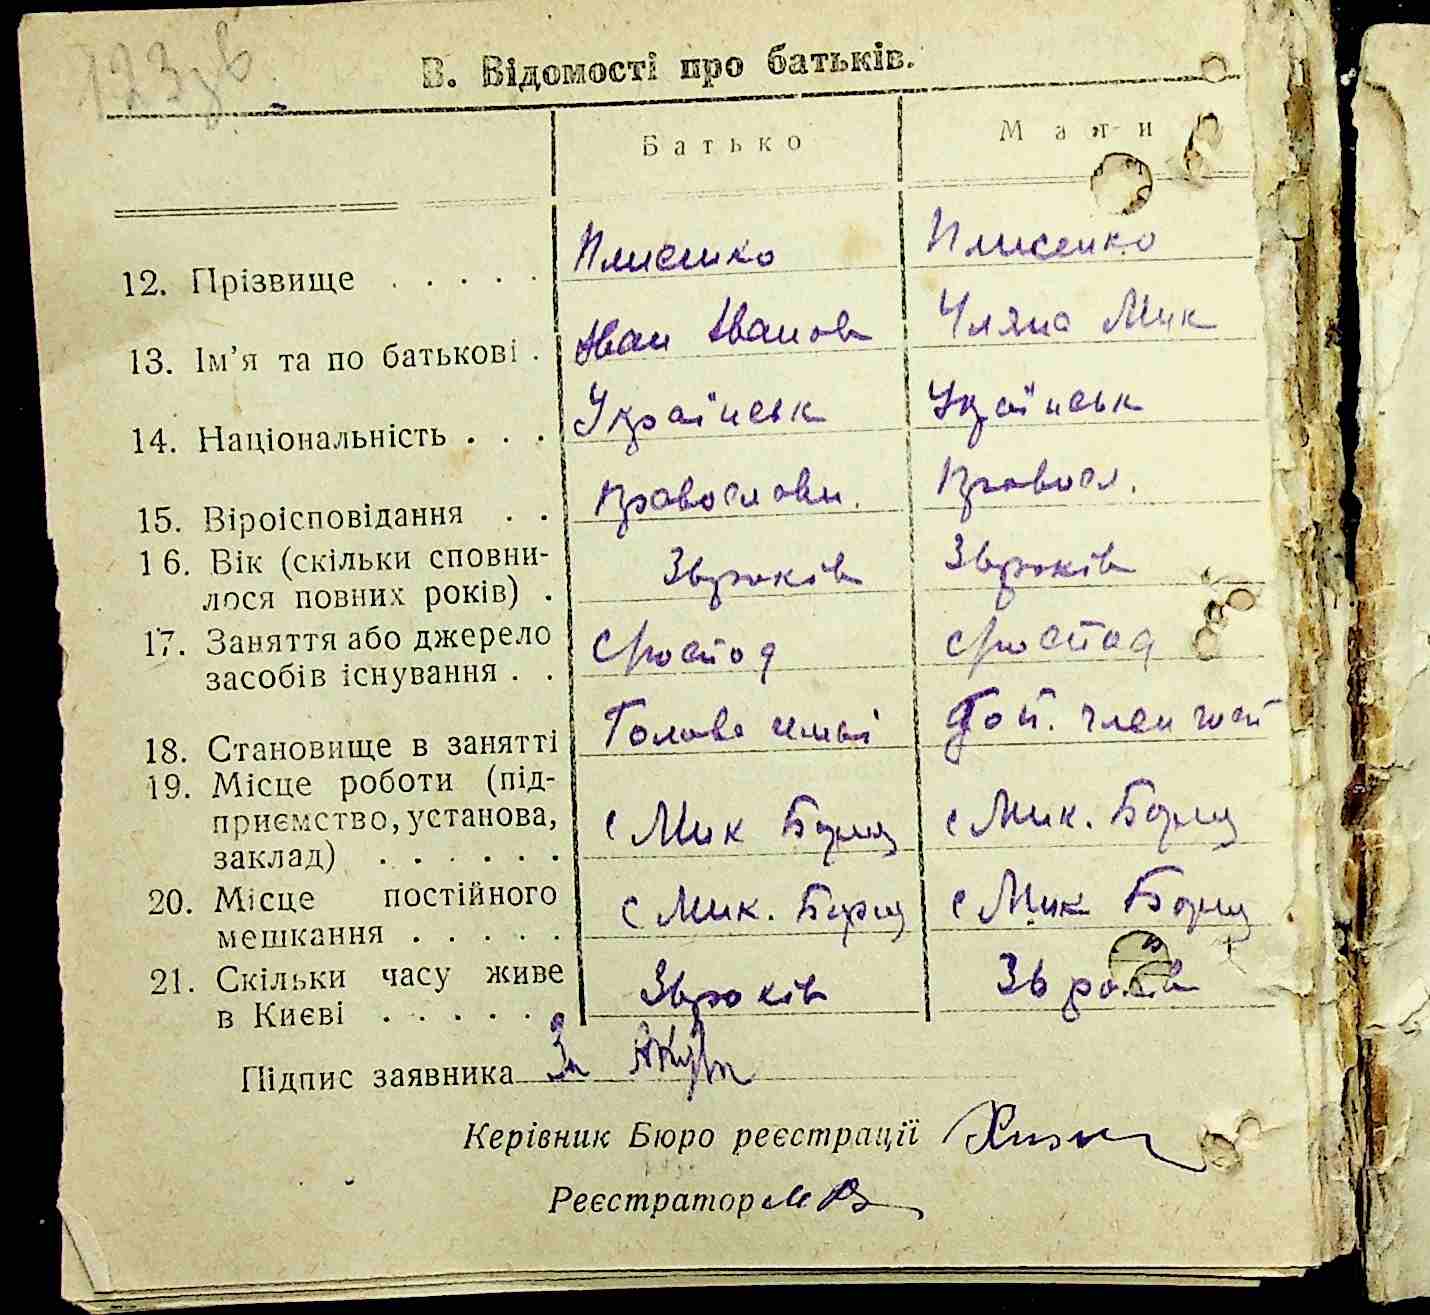 123зв
В. Відомості про батьків.
Батько Мати
12. Прізвище . . . . . Плисенко Плисенко
13. Ім'я та по батькові . Іван Іванов Уляна Мик
14. Національність . . . Українськ Українськ
15. Віроісповідання . . православн. правосл.
16. Вік (скільки сповни-
лося повних років) . років років
17. Заняття або джерело
засобів існування . .
18. Становище в занятті Голова член
19. Місце роботи (під-
приємство, установа,
заклад) . . . . . . с Мик Борщ с Мик. Борщ
20. Місце постійного
мешкання . . . . . с Мик. Борщ с Мик Борщ
21. Скільки часу живе
в Києві . . . . . . років років
Підпис заявника
Керівник Бюро реєстрації
Реєстратор